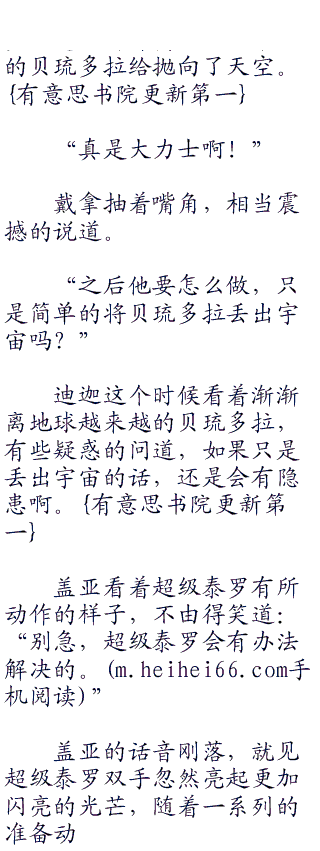 的贝琉多拉给抛向了天空。
{有意思书院更新第一}
“真是大力士啊！”
戴拿抽着嘴角，相当震
撼的说道。
“之后他要怎么做，只
是简单的将贝琉多拉丢出宇
宙吗？”
迪迦这个时候看着渐渐
离地球越来越的贝琉多拉，
有些疑惑的问道，如果只是
丢出宇宙的话，还是会有隐
患啊。{有意思书院更新第
一}
盖亚看着超级泰罗有所
动作的样子，不由得笑道：
“别急，超级泰罗会有办法
解决的。(m.heihei66.com手
机阅读)”
盖亚的话音刚落，就见
超级泰罗双手忽然亮起更加
闪亮的光芒，随着一系列的
准备动